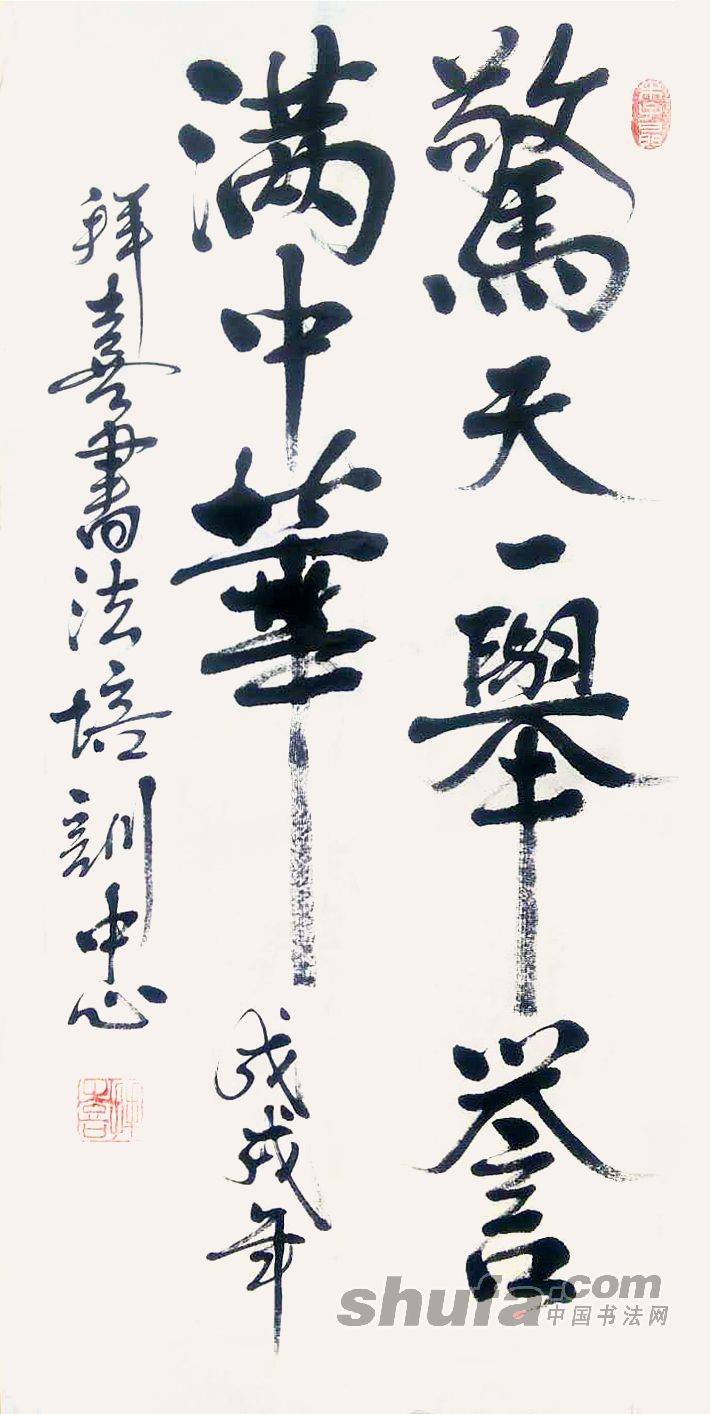 驚天一舉誉
满中華
戊戌年
祥喜書法培训中心
shufa.com
中国书法网